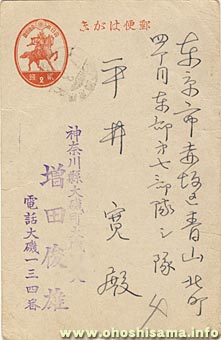 郵便はがき
東京市赤坂区青山北町
四丁目東部第七部隊シ隊
平井寛殿
神奈川縣大磯町
増田俊雄
電話大磯一三四番
www.ohoshisama.info